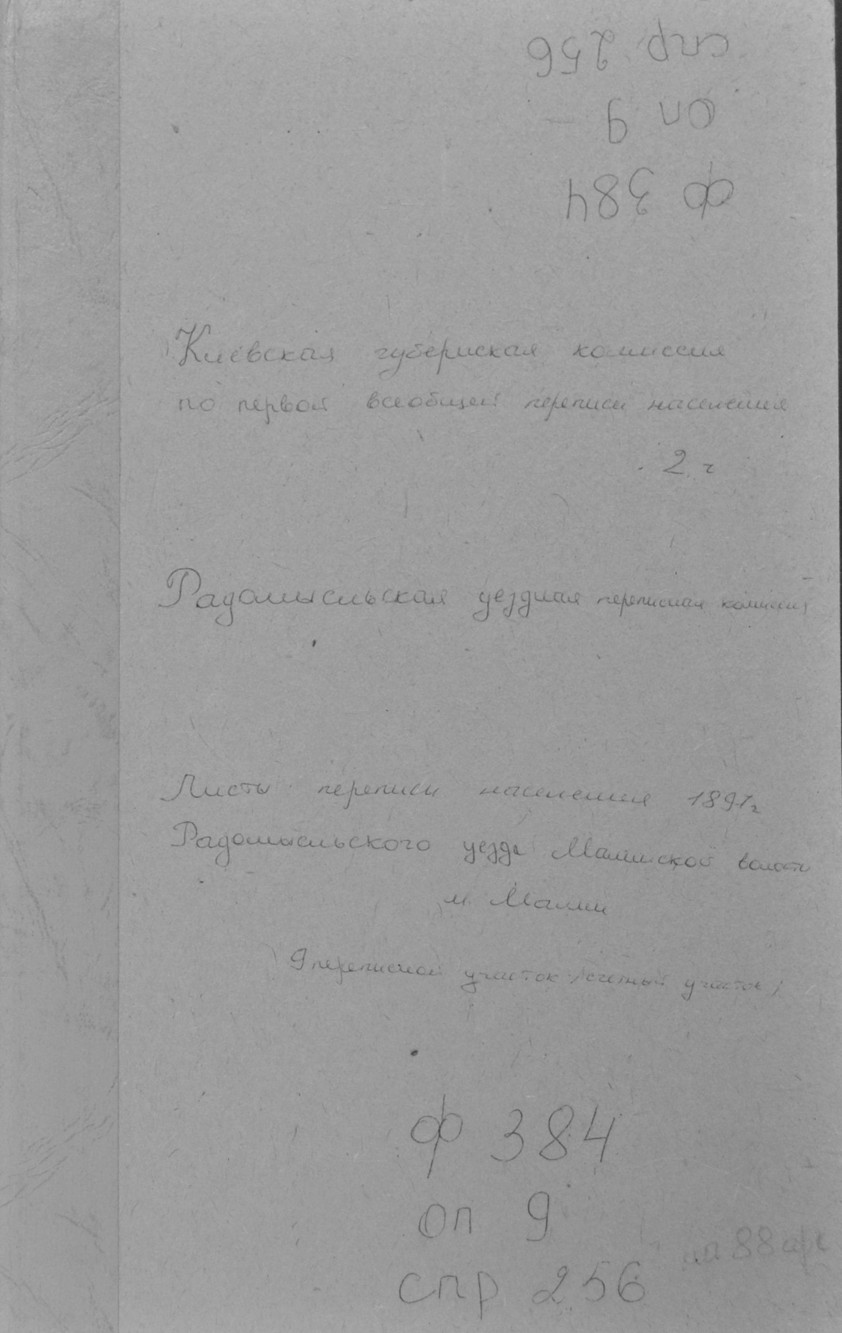 спр 256
оп 9 –
ф 384
Киевская губернская комиссия
по первой всеобщей переписи населения
2 г
Радомысльская уездная переписная комиссия
Листы переписи населения 1897г
Радомысльского уезда Малинской волости
м. Малин
9 переписной участок /счетный участок /
ф 384
оп 9
спр 256
на 88 арк